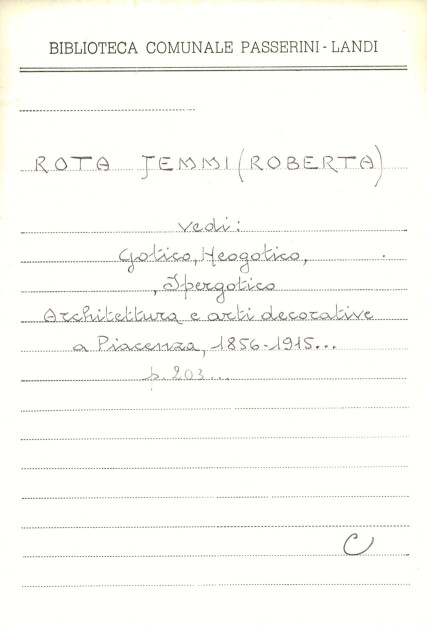 BIBLIOTECA COMUNALE PASSERINI - LANDI
ROTA JEMMI (ROBERTA)
vedi:
Gotico, Neogotico,
, Ipergotico
Architettura e arti decorative
a Piacenza, 1856-1915...
p. 203...
C